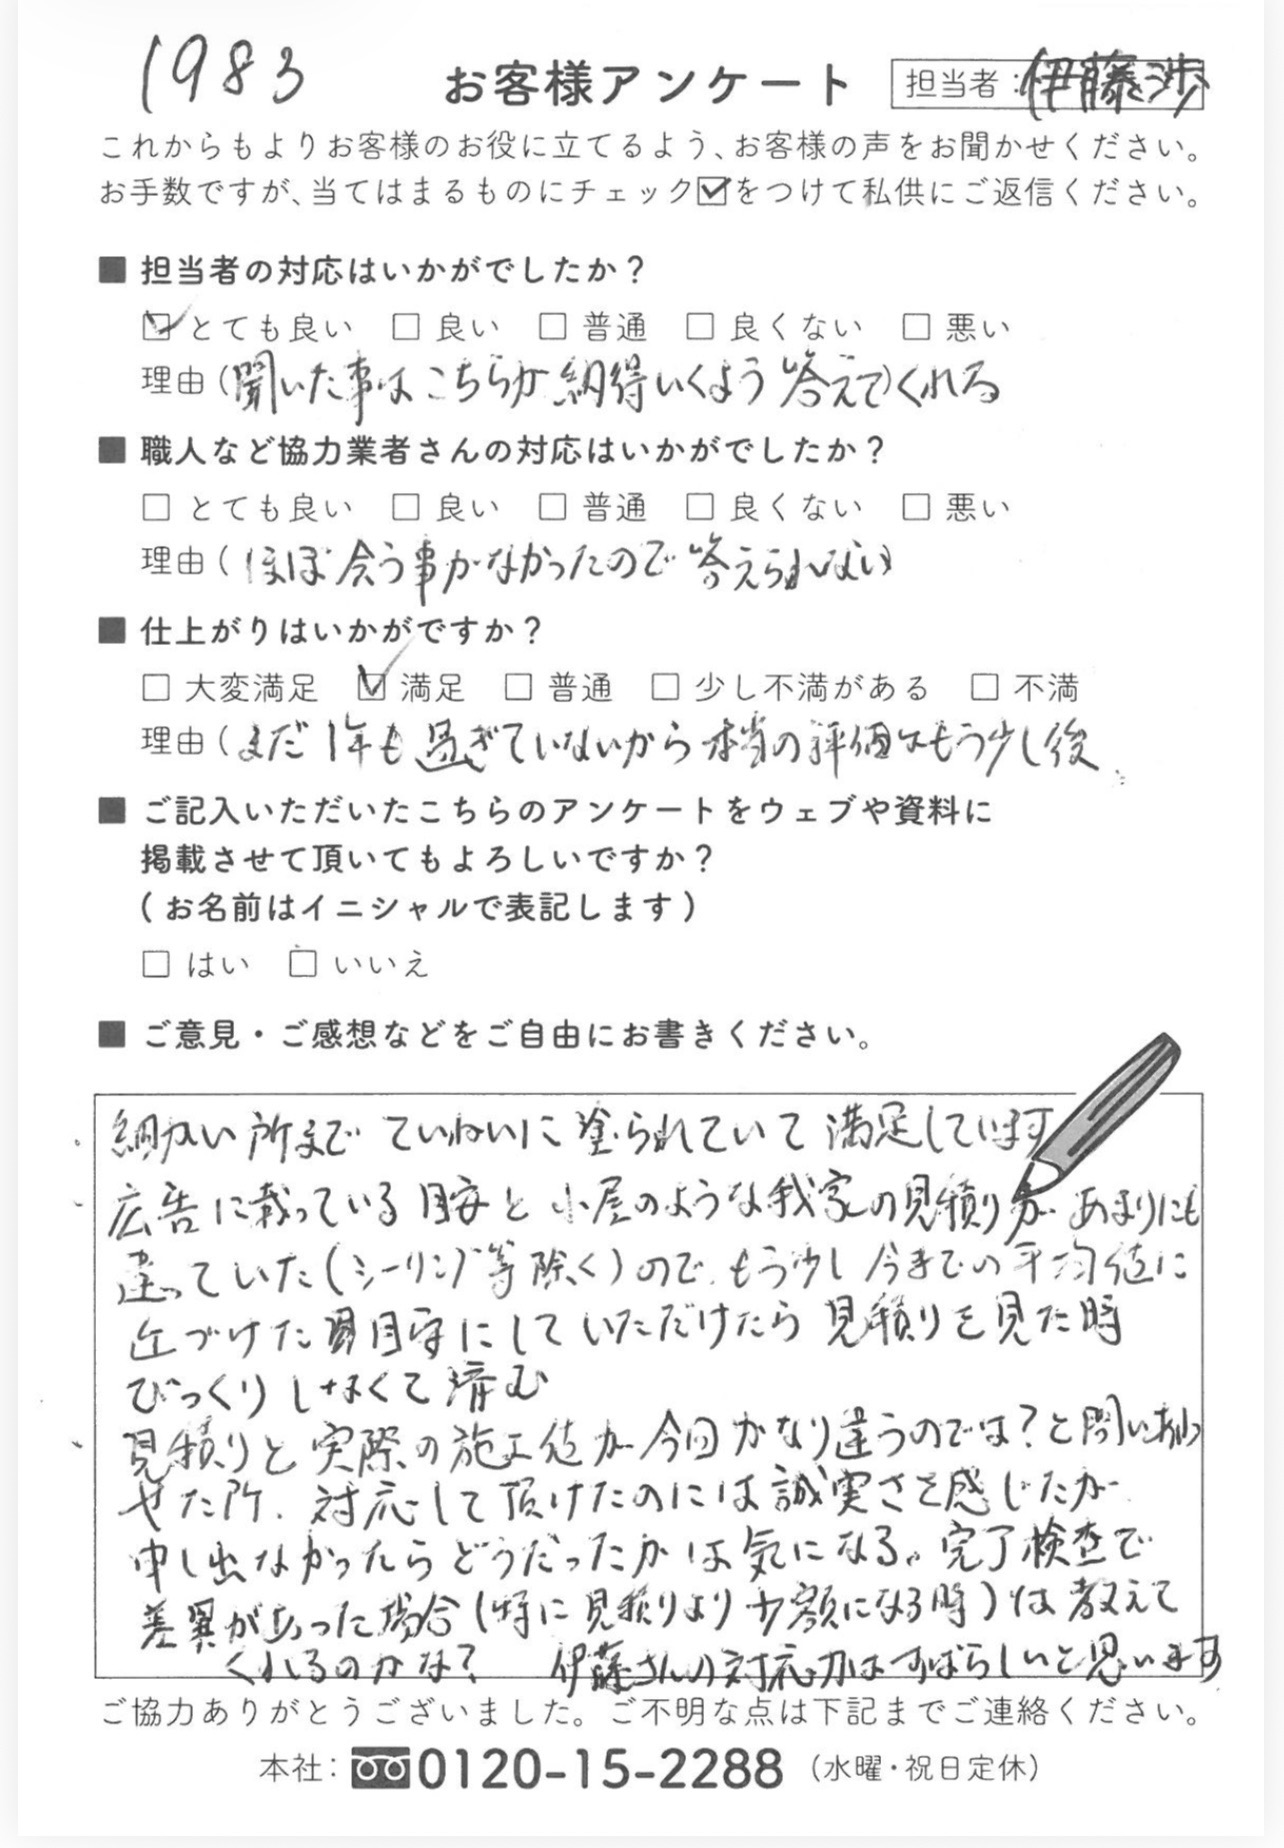 1983
お客様アンケート
担当者：伊藤渉
これからもよりお客様のお役に立てるよう、お客様の声をお聞かせください。
お手数ですが、当てはまるものにチェック☑をつけて私供にご返信ください。
■ 担当者の対応はいかがでしたか？
☑ とても良い □ 良い □ 普通 □ 良くない □ 悪い
理由（聞いた事はこちらが納得いくよう答えてくれる
■ 職人など協力業者さんの対応はいかがでしたか？
□ とても良い □ 良い □ 普通 □ 良くない □ 悪い
理由（ほぼ会う事がなかったので答えられない
■ 仕上がりはいかがですか？
□ 大変満足 ☑ 満足 □ 普通 □ 少し不満がある □ 不満
理由（まだ1年も過ぎていないから本当の評価はもう少し後
■ ご記入いただいたこちらのアンケートをウェブや資料に
掲載させて頂いてもよろしいですか？
（お名前はイニシャルで表記します）
□ はい □ いいえ
■ ご意見・ご感想などをご自由にお書きください。
細かい所までていねいに塗られていて満足しています
広告に載っている目安と小屋のような我家の見積りが あまりにも
違っていた（シーリング等除く）ので、もう少し今までの平均値に
近づけた目安にしていただけたら見積りを見た時
びっくりしなくて済む
見積りと実際の施工値が今回かなり違うのでは？と問い合わ
せた所、対応して頂けたのには誠実さを感じたが
申し出なかったらどうだったかは気になる。完了検査で
差異があった場合（特に見積りより少額になる時）は教えて
くれるのかな？ 伊藤さんの対応力はすばらしいと思います
ご協力ありがとうございました。ご不明な点は下記までご連絡ください。
本社：0120-15-2288（水曜・祝日定休）